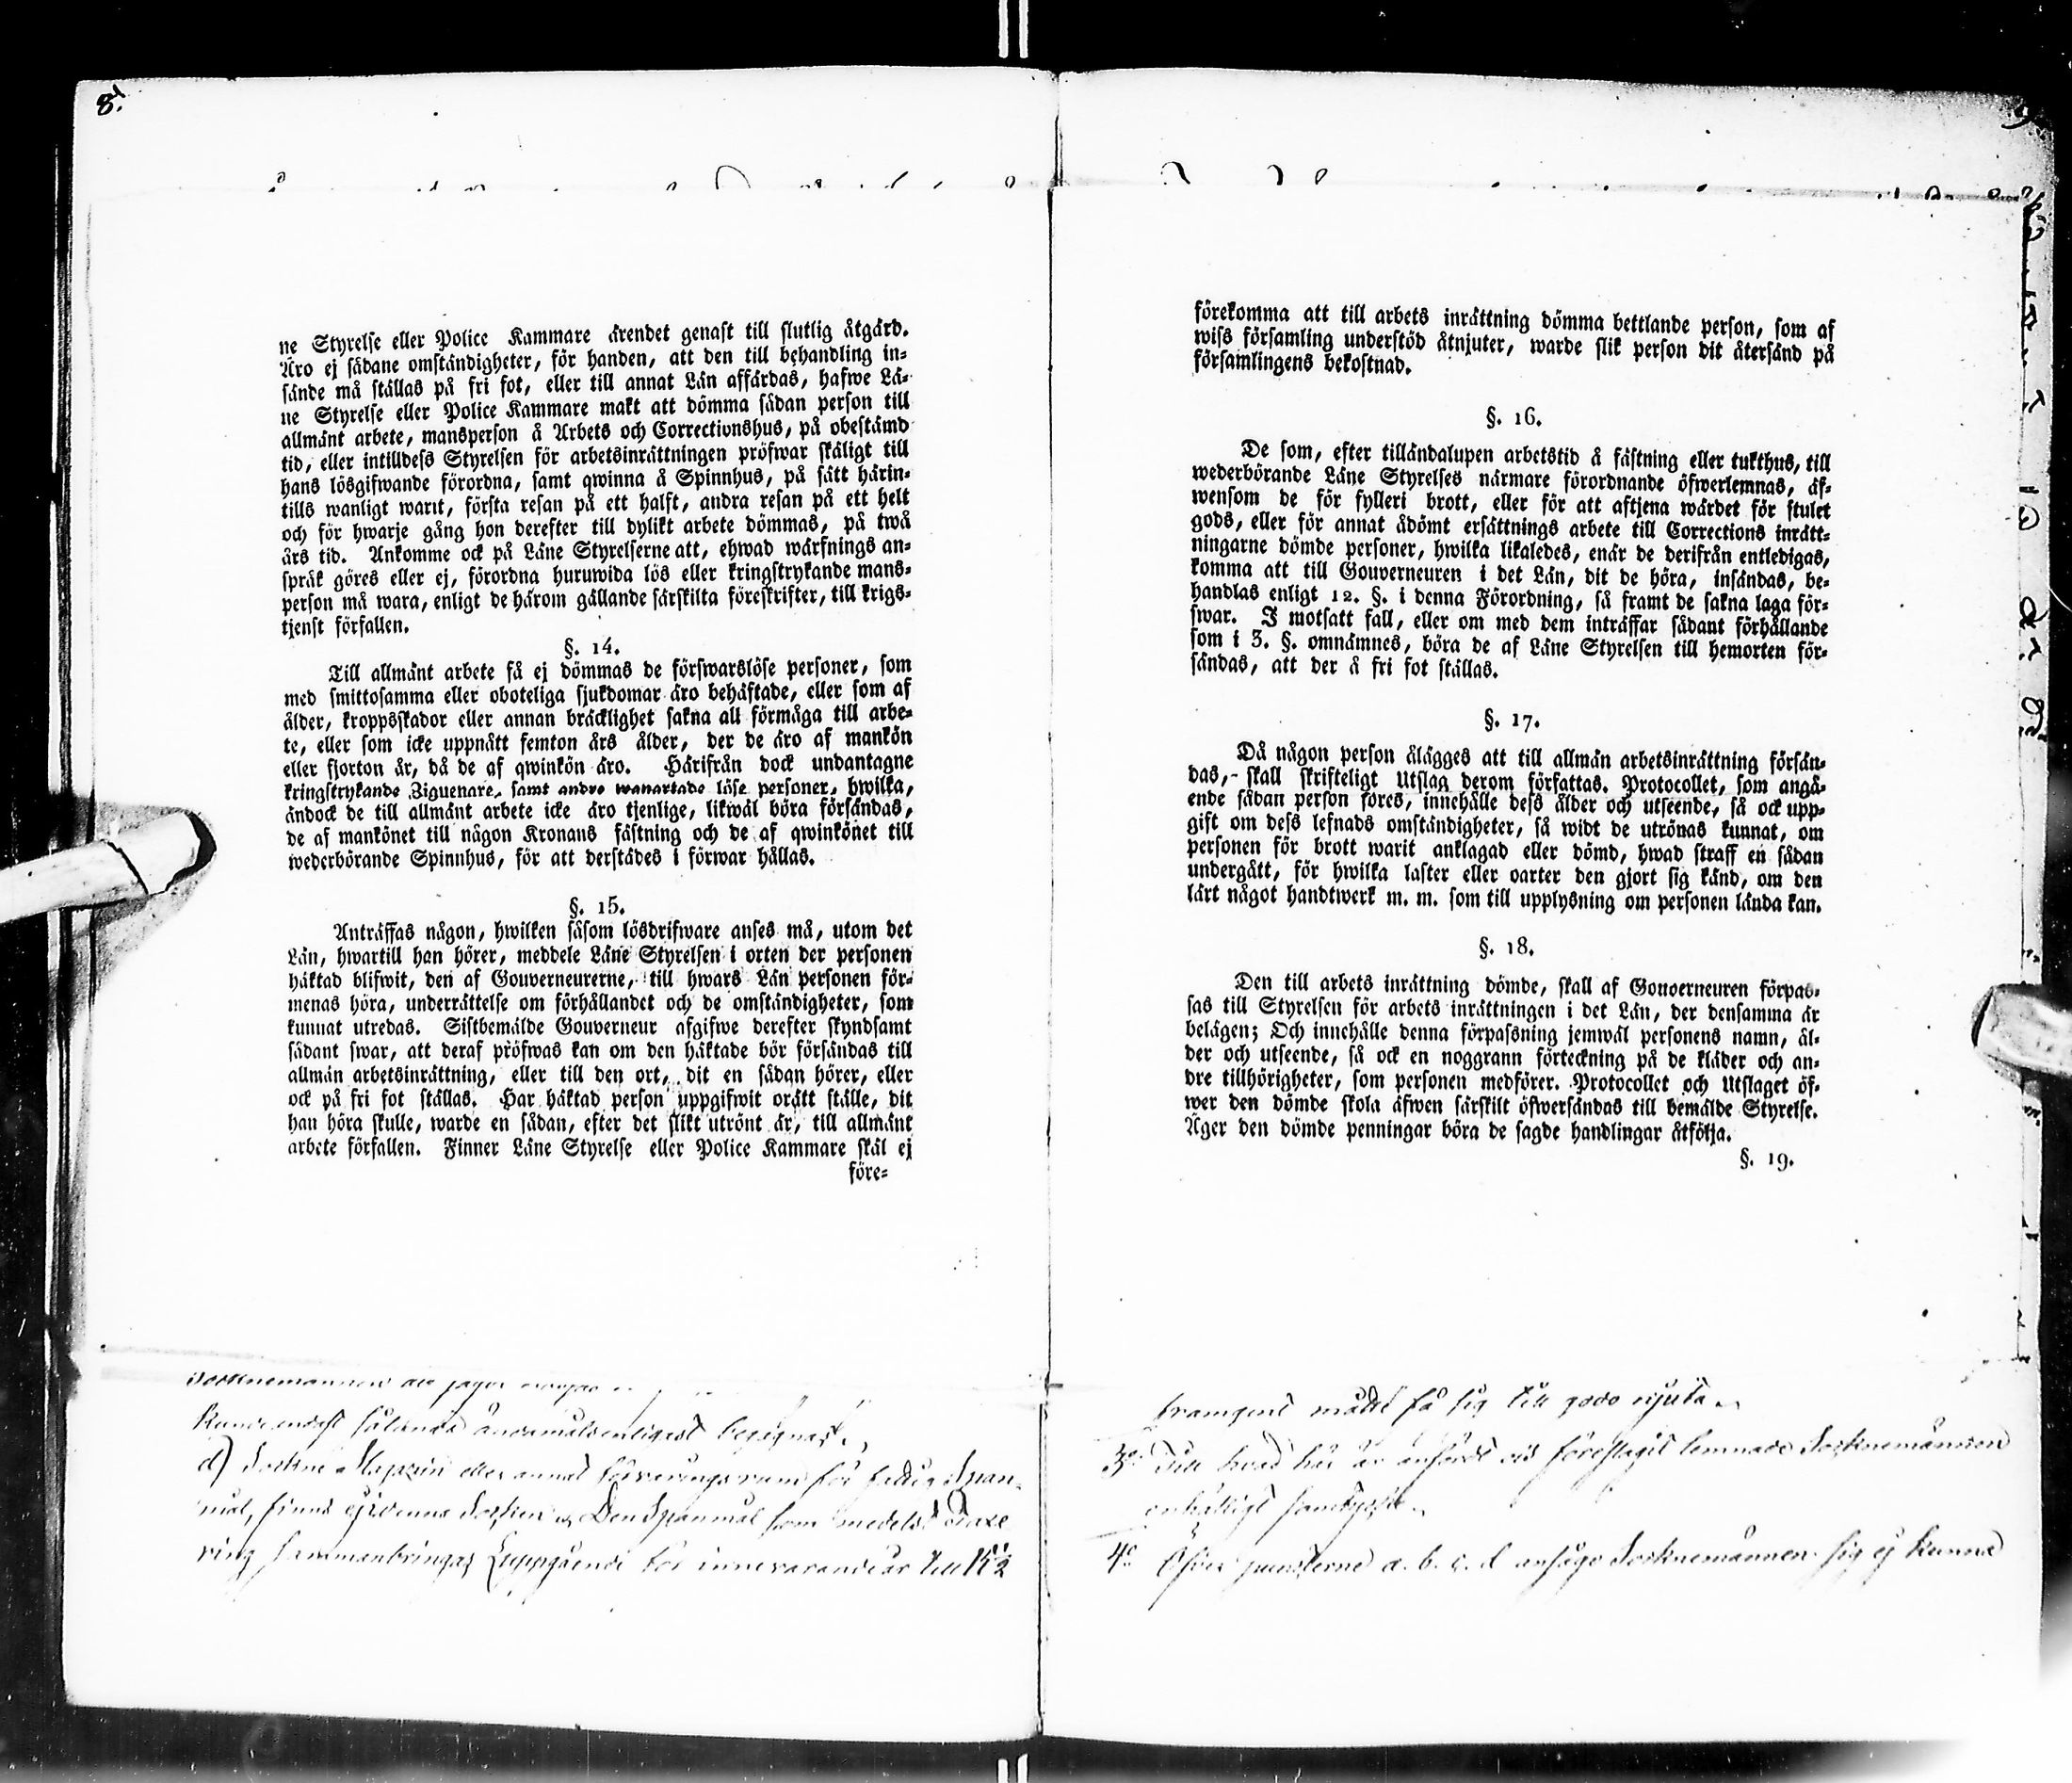 8.
ne Styrelse eller Police Kammare ärendet genast till slutlig åtgärd.
Äro ej sådane omständigheter, för handen, att den till behandling in-
sände må ställas på fri fot, eller till annat Län affärdas, hafwe Lä-
ne Styrelse eller Police Kammare makt att dömma sådan person till
allmänt arbete, mansperson å Arbets och Correctionshus, på obestämd
tid, eller intilldess Styrelsen för arbetsinrättningen pröfwar skäligt till
hans lösgifwande förordna, samt qwinna å Spinnhus, på sätt härin-
tills wanligt warit, första resan på ett halft, andra resan på ett helt
och för hwarje gång hon derefter till dylikt arbete dömmas, på twå
års tid. Ankomme ock på Läne Styrelserne att, ehwad wärfnings an-
språk göres eller ej, förordna huruwida lös eller kringstrykande mans-
person må wara, enligt de härom gällande särskilta föreskrifter, till krigs-
tjenst förfallen.
§. 14.
Till allmänt arbete få ej dömmas de förswarslöse personer, som
med smittosamma eller oboteliga sjukdomar äro behäftade, eller som af
ålder, kroppsskador eller annan bräcklighet sakna all förmåga till arbe-
te, eller som icke uppnått femton års ålder, der de äro af mankön
eller fjorton år, då de af qwinkön äro. Härifrån dock undantagne
kringstrykande Ziguenare, samt andre wanartade löse personer, hwilka,
ändock de till allmänt arbete icke äro tjenlige, likwäl böra försändas,
de af mankönet till någon Kronans fästning och de af qwinkönet till
wederbörande Spinnhus, för att derstädes i förwar hållas.
§. 15.
Anträffas någon, hwilken såsom lösdrifware anses må, utom det
Län, hwartill han hörer, meddele Läne Styrelsen i orten der personen
häktad blifwit, den af Gouverneurerne, till hwars Län personen för-
menas höra, underrättelse om förhållandet och de omständigheter, som
kunnat utredas. Sistbemälde Gouverneur afgifwe derefter skyndsamt
sådant swar, att deraf pröfwas kan om den häktade bör försändas till
allmän arbetsinrättning, eller till den ort, dit en sådan hörer, eller
ock på fri fot ställas. Har häktad person uppgifwit orätt ställe, dit
han höra skulle, warde en sådan, efter det slikt utrönt är, till allmänt
arbete förfallen. Finner Läne Styrelse eller Police Kammare skäl ej
före-
d) Sockne Magazin eller annat förvarings rum för Span-
mål, finns ej i denna Socken. Den Spanmål som medelst Taxe
ring sammanbringas för innevarande år till
förekomma att till arbets inrättning dömma bettlande person, som af
wiss församling understöd åtnjuter, warde slik person dit återsänd på
församlingens bekostnad.
§. 16.
De som, efter tilländalupen arbetstid å fästning eller tukthus, till
wederbörande Läne Styrelses närmare förordnande öfwerlemnas, äf-
wensom de för fylleri brott, eller för att aftjena wärdet för stulet
gods, eller för annat ådömt ersättnings arbete till Corrections inrätt-
ningarne dömde personer, hwilka likaledes, enär de derifrån entledigas,
komma att till Gouverneuren i det Län, dit de höra, insändas, be-
handlas enligt 12. §. i denna Förordning, så framt de sakna laga för-
swar. I motsatt fall, eller om med dem inträffar sådant förhållande
som i 3. §. omnämnes, böra de af Läne Styrelsen till hemorten för-
sändas, att der å fri fot ställas.
§. 17.
Då någon person ålägges att till allmän arbetsinrättning försän-
das, skall skrifteligt Utslag derom författas. Protocollet, som angå-
ende sådan person föres, innehålle dess ålder och utseende, så ock upp-
gift om dess lefnads omständigheter, så widt de utrönas kunnat, om
personen för brott warit anklagad eller dömd, hwad straff en sådan
undergått, för hwilka laster eller oarter den gjort sig känd, om den
lärt något handtwerk m. m. som till upplysning om personen lända kan.
§. 18.
Den till arbets inrättning dömde, skall af Gouverneuren förpas-
sas till Styrelsen för arbets inrättningen i det Län, der densamma är
belägen; Och innehålle denna förpassning jemwäl personens namn, ål-
der och utseende, så ock en noggrann förteckning på de kläder och an-
dre tillhörigheter, som personen medförer. Protocollet och Utslaget öf-
wer den dömde skola äfwen särskilt öfwersändas till bemälde Styrelse.
Äger den dömde penningar böra de sagde handlingar åtfölja.
§. 19.
framgent måtte få sig till godo njuta.
3o Till hvad här är anfördt och föreslagit lemnade Socknemännen
enhälligt samtycke.
4o Öfver puncterne a. b. c. d ansågo Socknemännen sig ej kunna